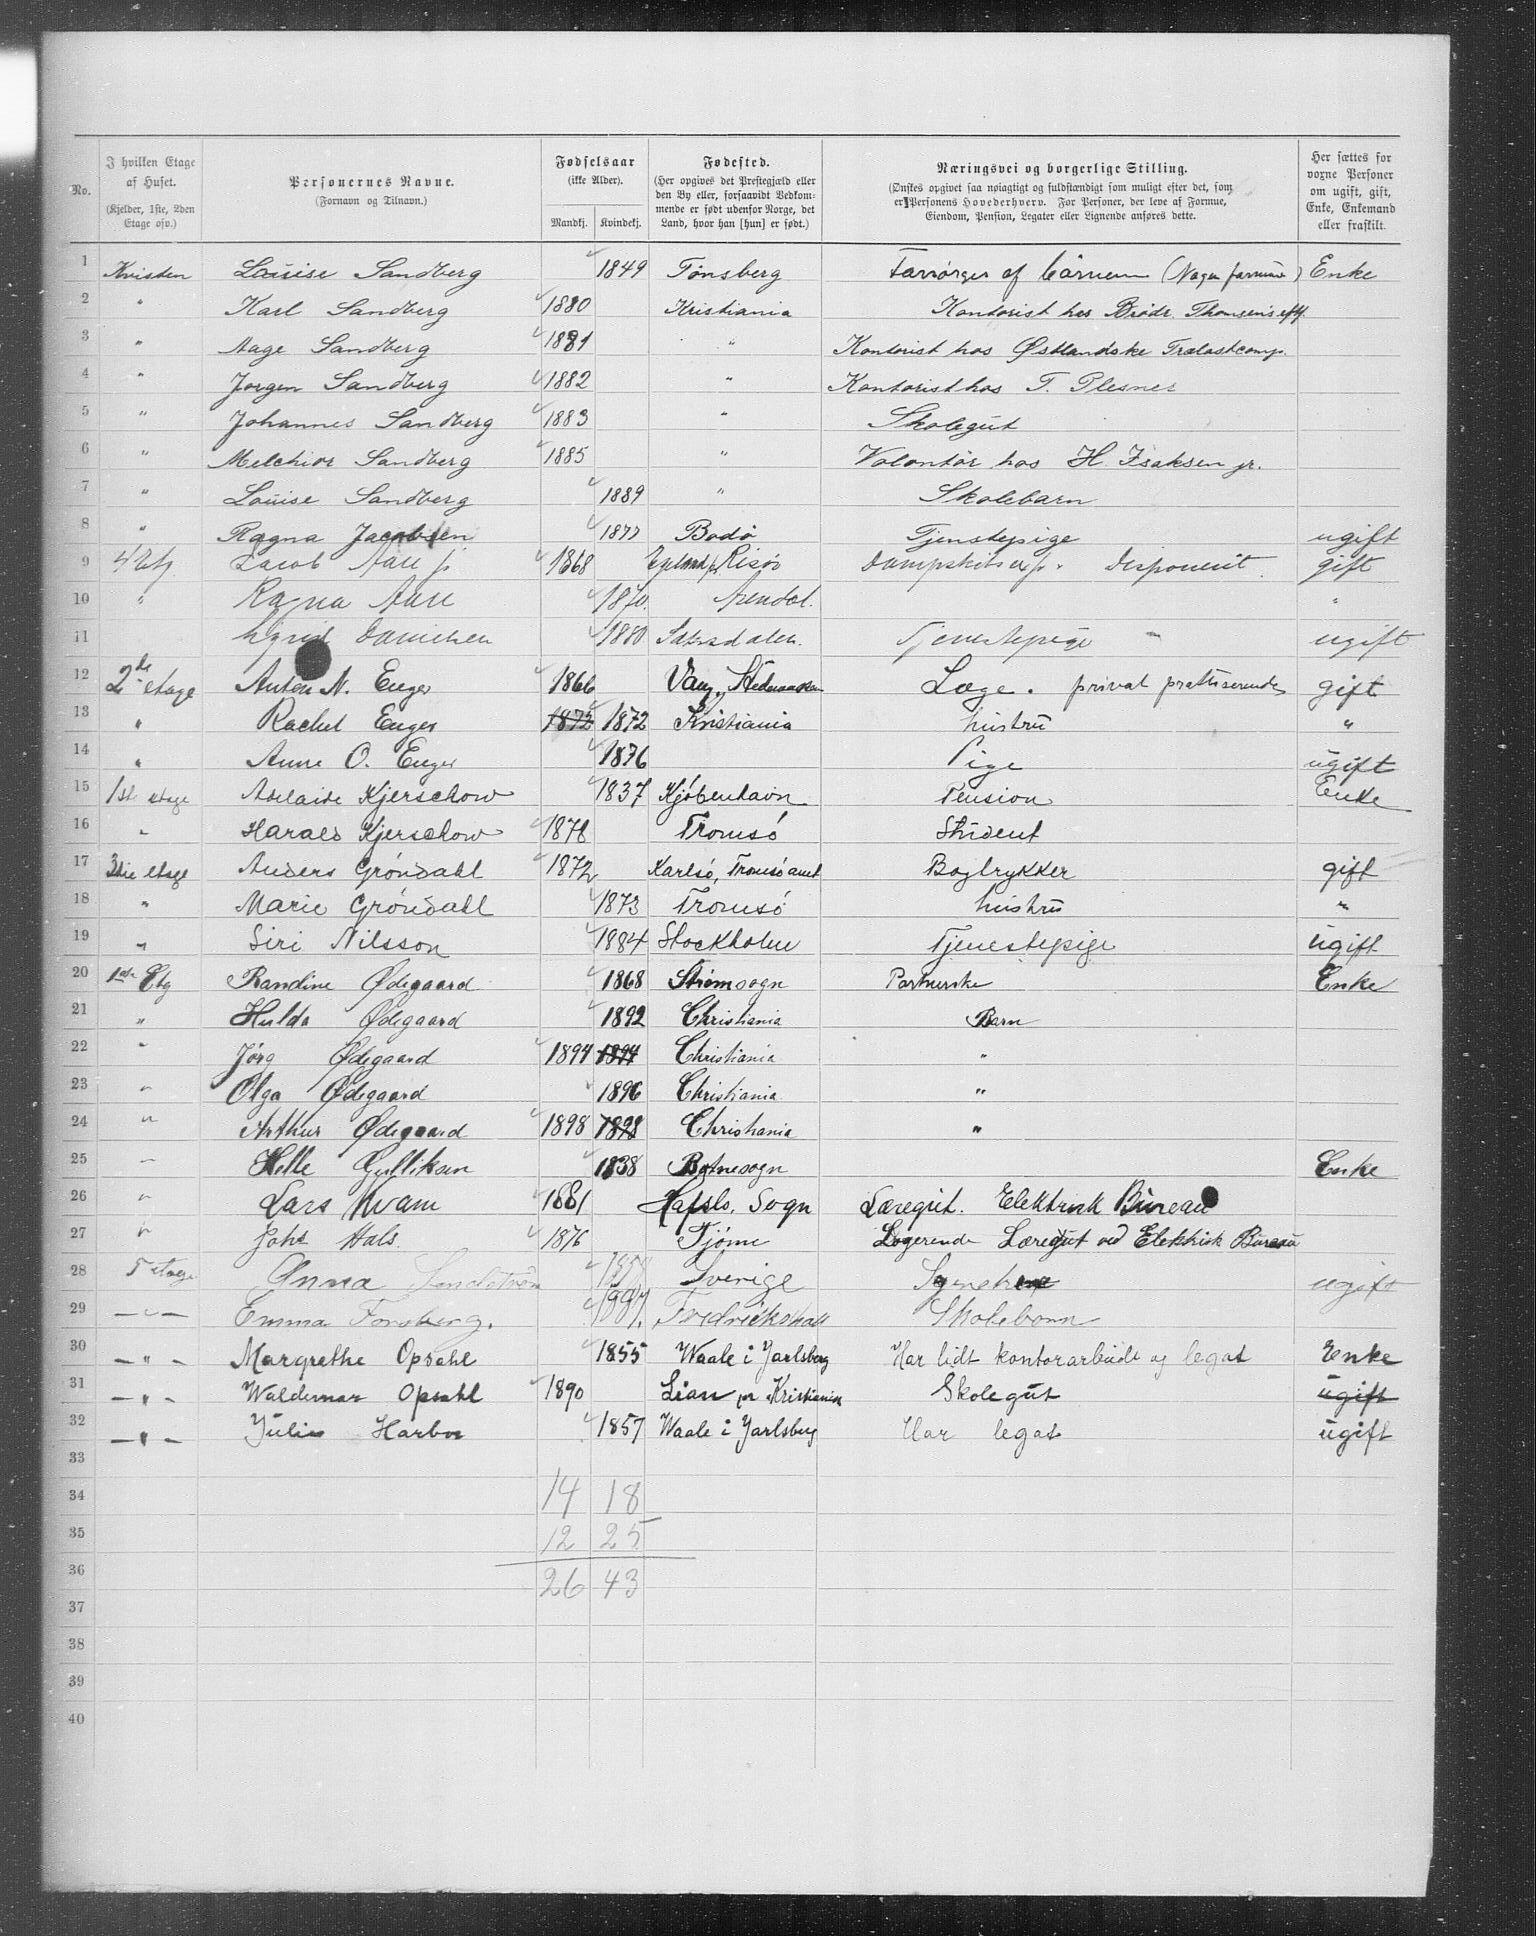 No. | I hvilken Etage af Huset. (Kjelder, 1ste, 2den Etage osv.) | Personernes Navne. (Fornavn og Tilnavn.) | Fødselsaar (ikke Alder). Mandkj. Kvindekj. | Fødested. (Her opgives det Prestegjæld eller den By eller, forsaavidt Vedkommende er født udenfor Norge, det Land, hvor han [hun] er født.) | Næringsvei og borgerlige Stilling. (Ønskes opgivet saa nøiagtigt og fuldstændigt som muligt efter det, som er Personens Hovederhverv. For Personer, der leve af Formue, Eiendom, Pension, Legater eller Lignende anføres dette. | Her sættes for voxne Personer om ugift, gift, Enke, Enkemand eller fraskilt.
1 Kvisten Louise Sandberg 1849 Tønsberg Forsørges af børnene (Nogen formue) Enke
2 " Karl Sandberg 1880 Kristiania Kontorist hos Brødr. Thomsens eftf.
3 " Aage Sandberg 1881 " Kontorist hos Østlandske Trælastcomp.
4 " Jørgen Sandberg 1882 " Kontorist hos T. Plesner
5 " Johannes Sandberg 1883 " Skolegut
6 " Melchior Sandberg 1885 " Volontør hos H. Isaksen jr.
7 " Louise Sandberg 1889 " Skolebarn
8 " Ragna Jacobsen 1877 Bodø Tjenstepige ugift
9 4 Etg Jacob Aall jr 1868 Risør Dampskibsexp. Disponent gift
10 " Ragna Aall 1870. Arendal. "
11 Danielsen 1880 Sætersdalen. Tjenestepige " ugift
12 2de etage Anton N. Enger 1866 Vang, Hedemarken Læge. privat praktiserende gift
13 " Rachel Enger 1872 1872 Kristiania hustru "
14 " Anne O. Enger 1876 Pige ugift
15 1st etage Adelaide Kjerschow 1837 Kjøbenhavn Pension Enke
16 " Harald Kjerschow 1878 Tromsø Student
17 3die etage Anders Grøndahl 1872 Karlsø, Tromsø amt Bogtrykker gift
18 " Marie Grøndahl 1873 Tromsø hustru "
19 " Siri Nilsson 1884 Stockholm Tjenestepige ugift
20 1ste Etg Randine Ødegaard 1868 Strømsogn Portnerske Enke
21 " Hulda Ødegaard 1892 Christiania Barn
22 " Jørg Ødegaard 1894 1894 Christiania "
23 " Olga Ødegaard 1896 Christiania "
24 " Arthur Ødegaard 1898 1898 Christiania "
25 " Helle Gulliksen 1838 Botnesogn Enke
26 " Lars Kvam 1881 Hafslo, Sogn Læregut. Elektrisk Bureau
27 " Johs Hals. 1876 Tjømø Logerende Læregut ved Elektrisk Bureau
28 1 etage Anna Sundström Sverige ugift
29 — " — Emma Forsberg. 1887. Fredrikshald Skolebarn
30 — " — Margrethe Opsahl 1855 Waale i Jarlsberg Har lidt kontorarbeide og legat Enke
31 — " — Waldemar Opsahl 1890 Lian pr Kristiania Skolegut ugift
32 — " — Julie Harboe 1857 Waale i Jarlsberg Har legat ugift
33
34 14 18
35 12 25
36 26 43
37
38
39
40